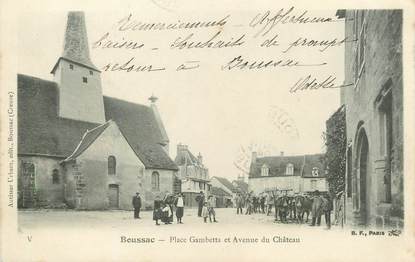 Remerciements - Affectueux
baisers - Souhaits de prompt
retour à Boussac.
Odette
Auxineur Urbain, édit., Boussac (Creuse)
V
Boussac — Place Gambetta et Avenue du Château
B. F., PARIS